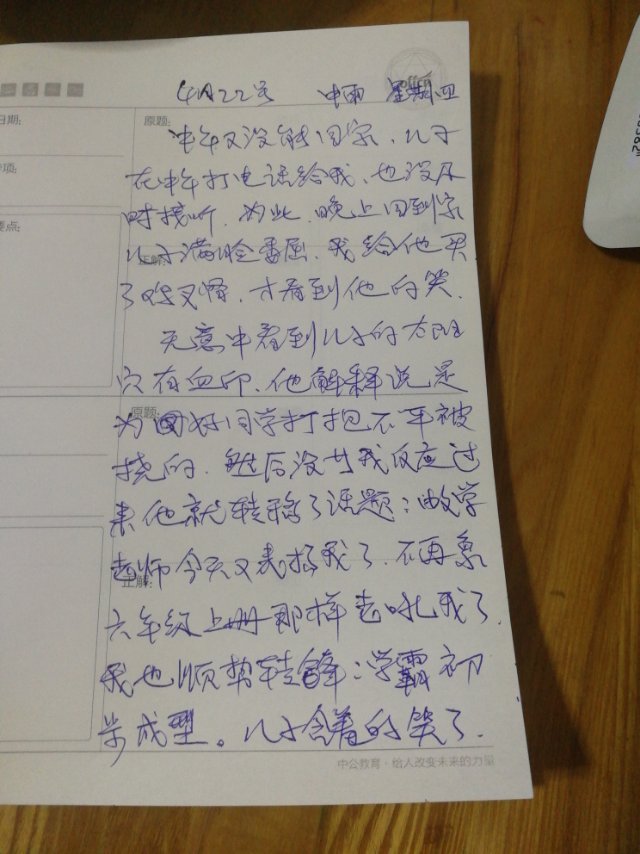 offcn
4月22号 中雨 星期四
日期:
原题:
中午又没能回家,儿子
在中午打电话给我,也没及
时接听,为此,晚上回到家
要点:
儿子满脸委屈,我给他买
正解:
了吃的,才看到他的笑.
无意中看到儿子的太阳
穴有血印,他解释说是
原题:
为好同学打抱不平被
挠的.然后没等我反应过
来他就转移了话题:数学
老师今天又表扬我了.不再象
正解:
六年级上册那样老吼我了.
我也顺势转锋:学霸初
步成型。儿子含着的笑了.
中公教育·给人改变未来的力量